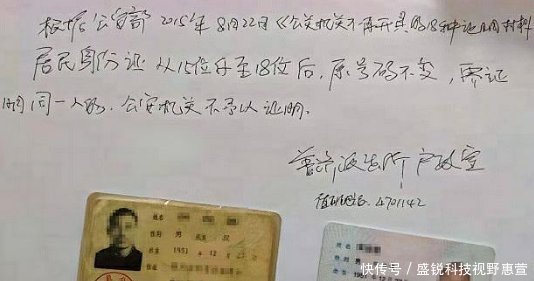 根据公安部2015年8月22日《公安机关不再开具的18种证明材料
居民身份证从15位升至18位后，原号码不变，需证
明同一人的，公安机关不予以证明。
普济派出所户政室
值班电话：4701142
姓名
性别 男 民族 汉
1951 年 12 月 23 日
姓名
快传号 / 盛锐科技视野惠萱